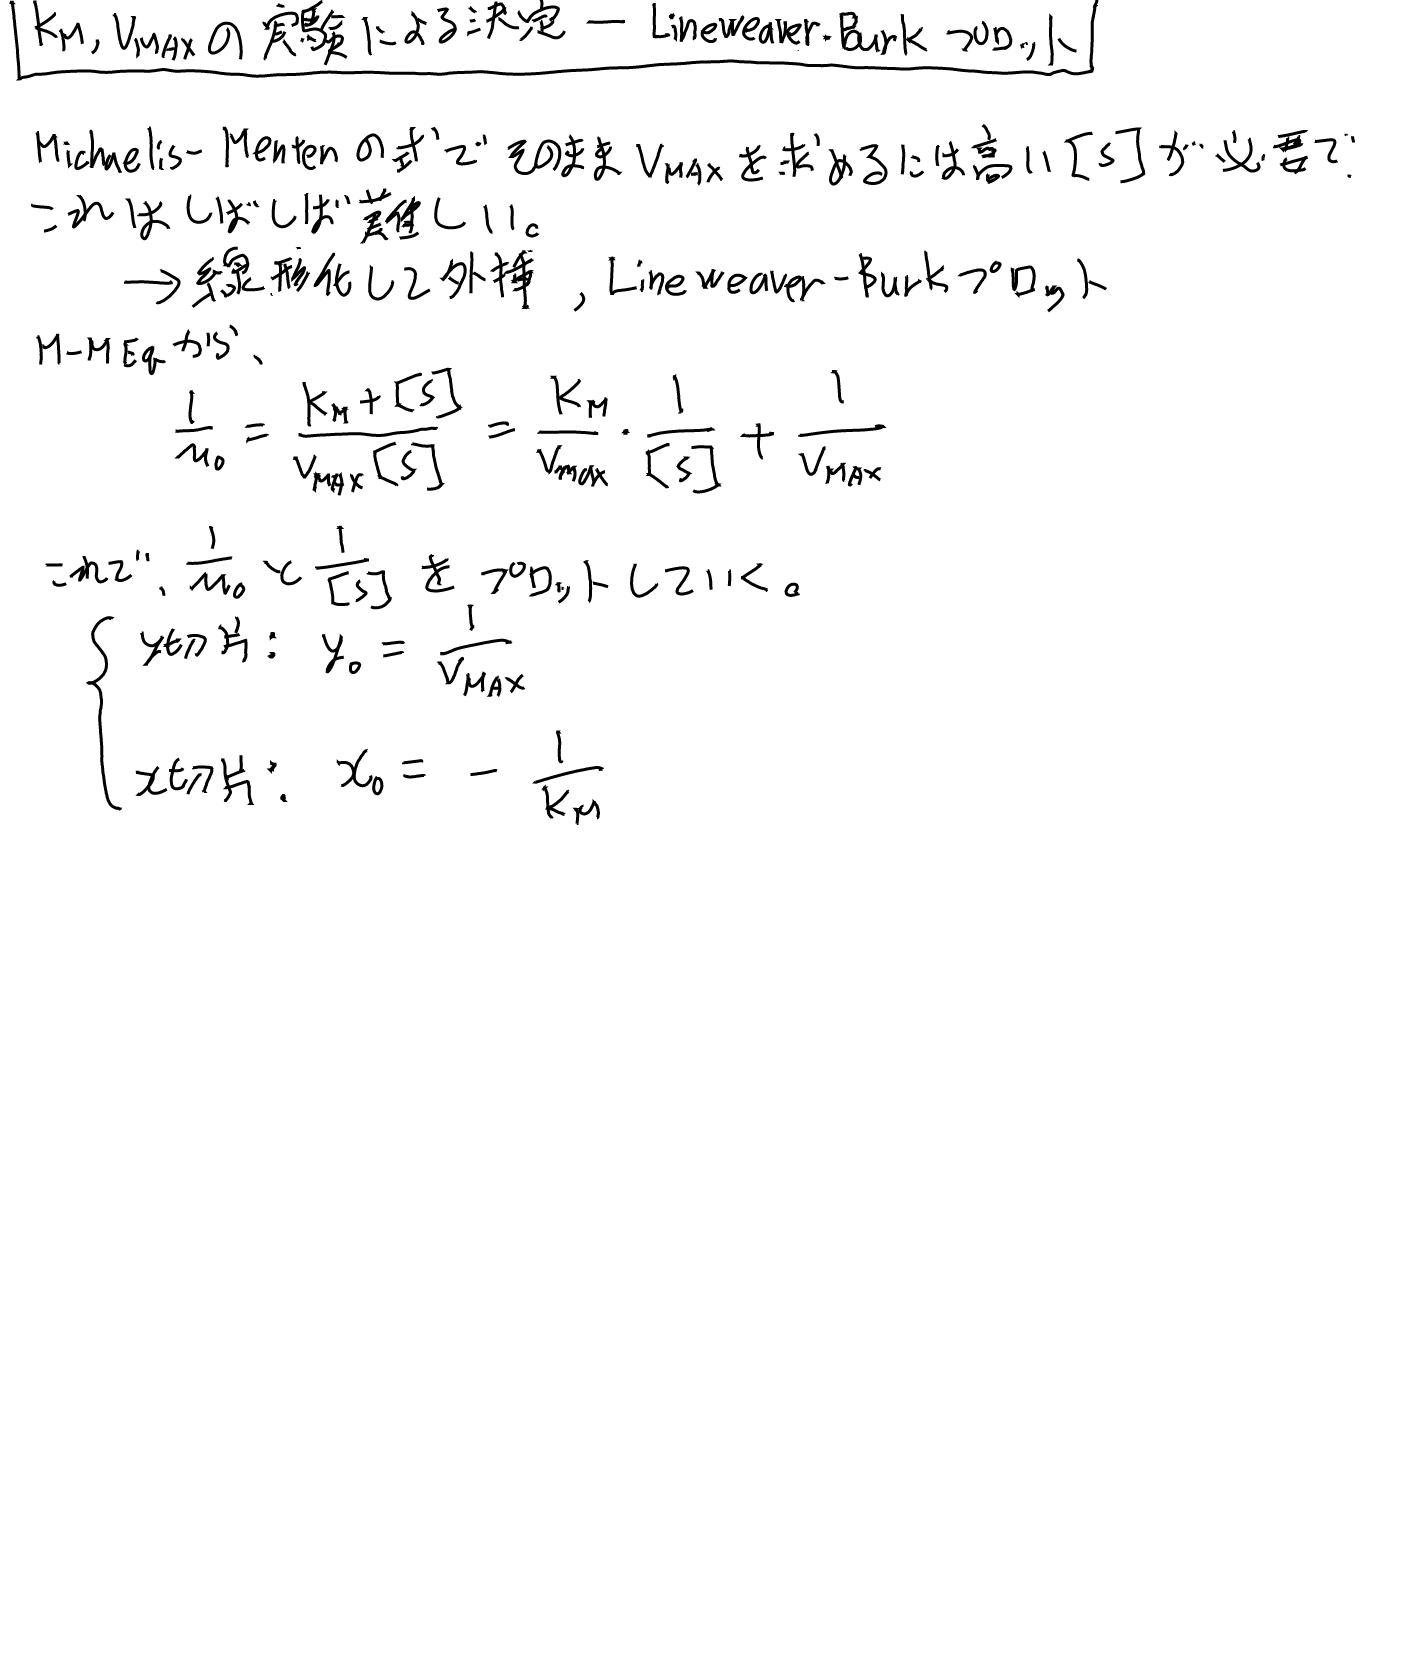 KM, VMAXの実験による決定 ー Lineweaver-Burkプロット
Michaelis-Mentenの式でそのままVMAXを求めるには高い[S]が必要で
これはしばしば難しい。
→線形化して外挿, Lineweaver-Burkプロット
M-M Eqから、
1/u0 = (KM+[S])/(VMAX[S]) = KM/Vmax・1/[S] + 1/VMAX
これで、1/u0と1/[S]をプロットしていく。
y切片: y0 = 1/VMAX
x切片: x0 = - 1/KM